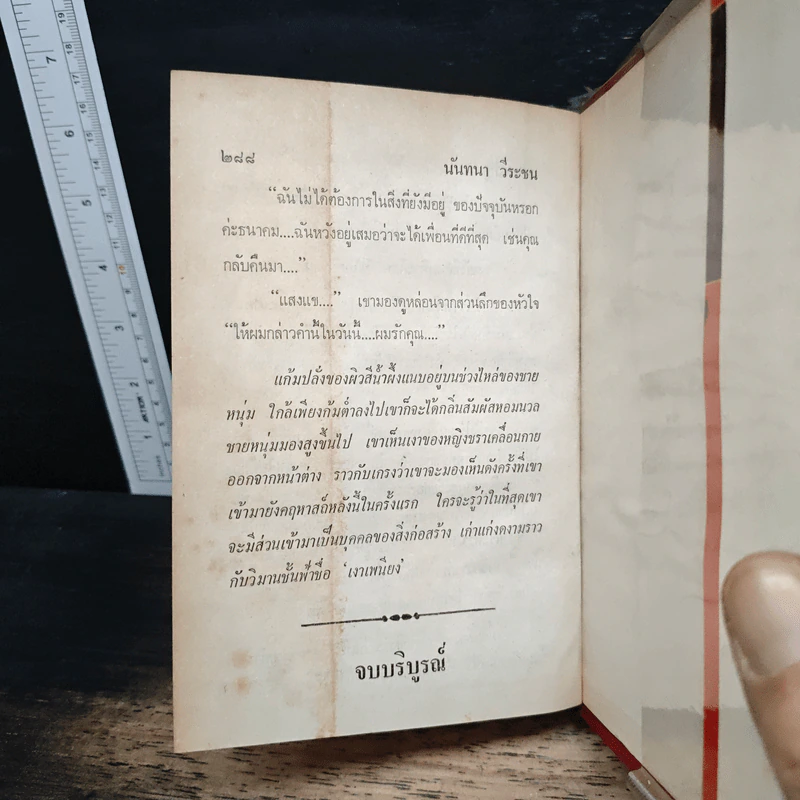 ๒๘๘ นันทนา วีระชน
“ฉันไม่ได้ต้องการในสิ่งที่ยังมีอยู่ ของปัจจุบันหรอก
ค่ะธนาคม....ฉันหวังอยู่เสมอว่าจะได้เพื่อนที่ดีที่สุด เช่นคุณ
กลับคืนมา....”
“แสงแข....” เขามองดูหล่อนจากส่วนลึกของหัวใจ
“ให้ผมกล่าวคำนี้ในวันนี้....ผมรักคุณ....”
แก้มปลั่งของผิวสีน้ำผึ้งแนบอยู่บนช่วงไหล่ของชาย
หนุ่ม ใกล้เพียงก้มต่ำลงไปเขาก็จะได้กลิ่นสัมผัสหอมนวล
ชายหนุ่มมองสูงขึ้นไป เขาเห็นเงาของหญิงชราเคลื่อนกาย
ออกจากหน้าต่าง ราวกับเกรงว่าเขาจะมองเห็นดังครั้งที่เขา
เข้ามายังคฤหาสถ์หลังนี้ในครั้งแรก ใครจะรู้ว่าในที่สุดเขา
จะมีส่วนเข้ามาเป็นบุคคลของสิ่งก่อสร้าง เก่าแก่งดงามราว
กับวิมานชั้นฟ้าชื่อ ‘เงาเพนียง’
จบบริบูรณ์
7
6
5
4
3
2
1